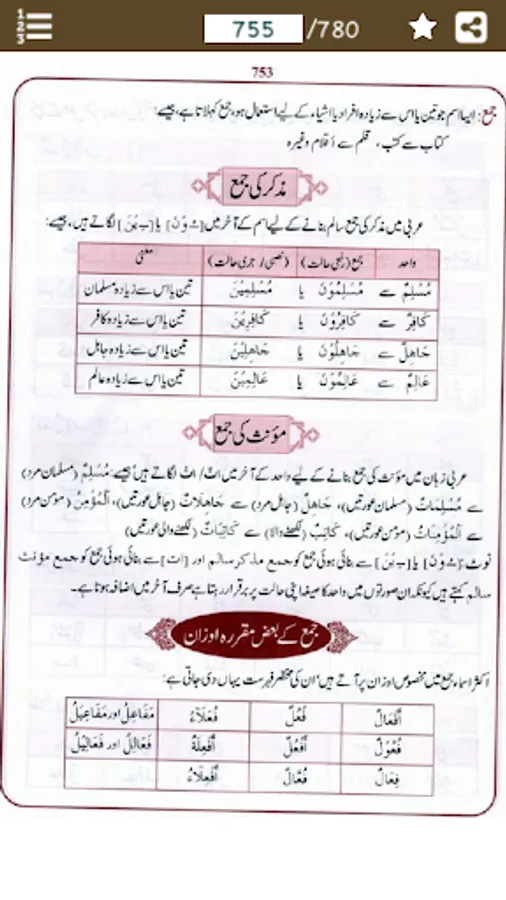 1 2 3
755 /780
753
جمع: ایسا اسم جو تین یا اس سے زیادہ افراد یا اشیاء کے لیے استعمال ہو، جمع کہلاتا ہے، جیسے:
کتاب سے کتب، قلم سے أقلام وغیرہ
مذکر کی جمع
عربی میں مذکر کی جمع سالم بنانے کے لیے اسم کے آخر میں [ـُوْنَ] یا [ـِيْنَ] لگاتے ہیں، جیسے:
واحد جمع (رفعی حالت) (نصبی/جری حالت) معنی
مُسْلِمٌ سے مُسْلِمُوْنَ یا مُسْلِمِيْنَ تین یا اس سے زیادہ مسلمان
كَافِرٌ سے كَافِرُوْنَ یا كَافِرِيْنَ تین یا اس سے زیادہ کافر
جَاهِلٌ سے جَاهِلُوْنَ یا جَاهِلِيْنَ تین یا اس سے زیادہ جاہل
عَالِمٌ سے عَالِمُوْنَ یا عَالِمِيْنَ تین یا اس سے زیادہ عالم
مؤنث کی جمع
عربی زبان میں مؤنث کی جمع بنانے کے لیے واحد کے آخر میں اتٌ/اتٍ لگاتے ہیں جیسے: مُسْلِمٌ (مسلمان مرد)
سے مُسْلِمَاتٌ (مسلمان عورتیں)، جَاهِلٌ (جاہل مرد) سے جَاهِلَاتٌ (جاہل عورتیں)، اَلْمُؤْمِنُ (مومن مرد)
سے اَلْمُؤْمِنَاتُ (مومن عورتیں)، كَاتِبٌ (لکھنے والا) سے كَاتِبَاتٌ (لکھنے والی عورتیں)
نوٹ: [ـُوْنَ] یا [ـِيْنَ] سے بنائی ہوئی جمع کو جمع مذکر سالم اور [ات] سے بنائی ہوئی جمع کو جمع مؤنث
سالم کہتے ہیں کیونکہ ان صورتوں میں واحد کا صیغہ اپنی حالت پر برقرار رہتا ہے صرف آخر میں اضافہ ہوتا ہے۔
جمع کے بعض مقررہ اوزان
اکثر اسماء جمع میں مخصوص اوزان پر آتے ہیں' ان کی مختصر فہرست یہاں دی جاتی ہے:
أَفْعَالٌ فُعُلٌ فُعَلَاءُ مَفَاعِلُ اور مَفَاعِيْلُ
فُعُوْلٌ أَفْعُلٌ أَفْعِلَةٌ فَعَالِلُ اور فَعَالِيْلُ
فِعَالٌ فُعَّالٌ أَفْعِلَاءُ